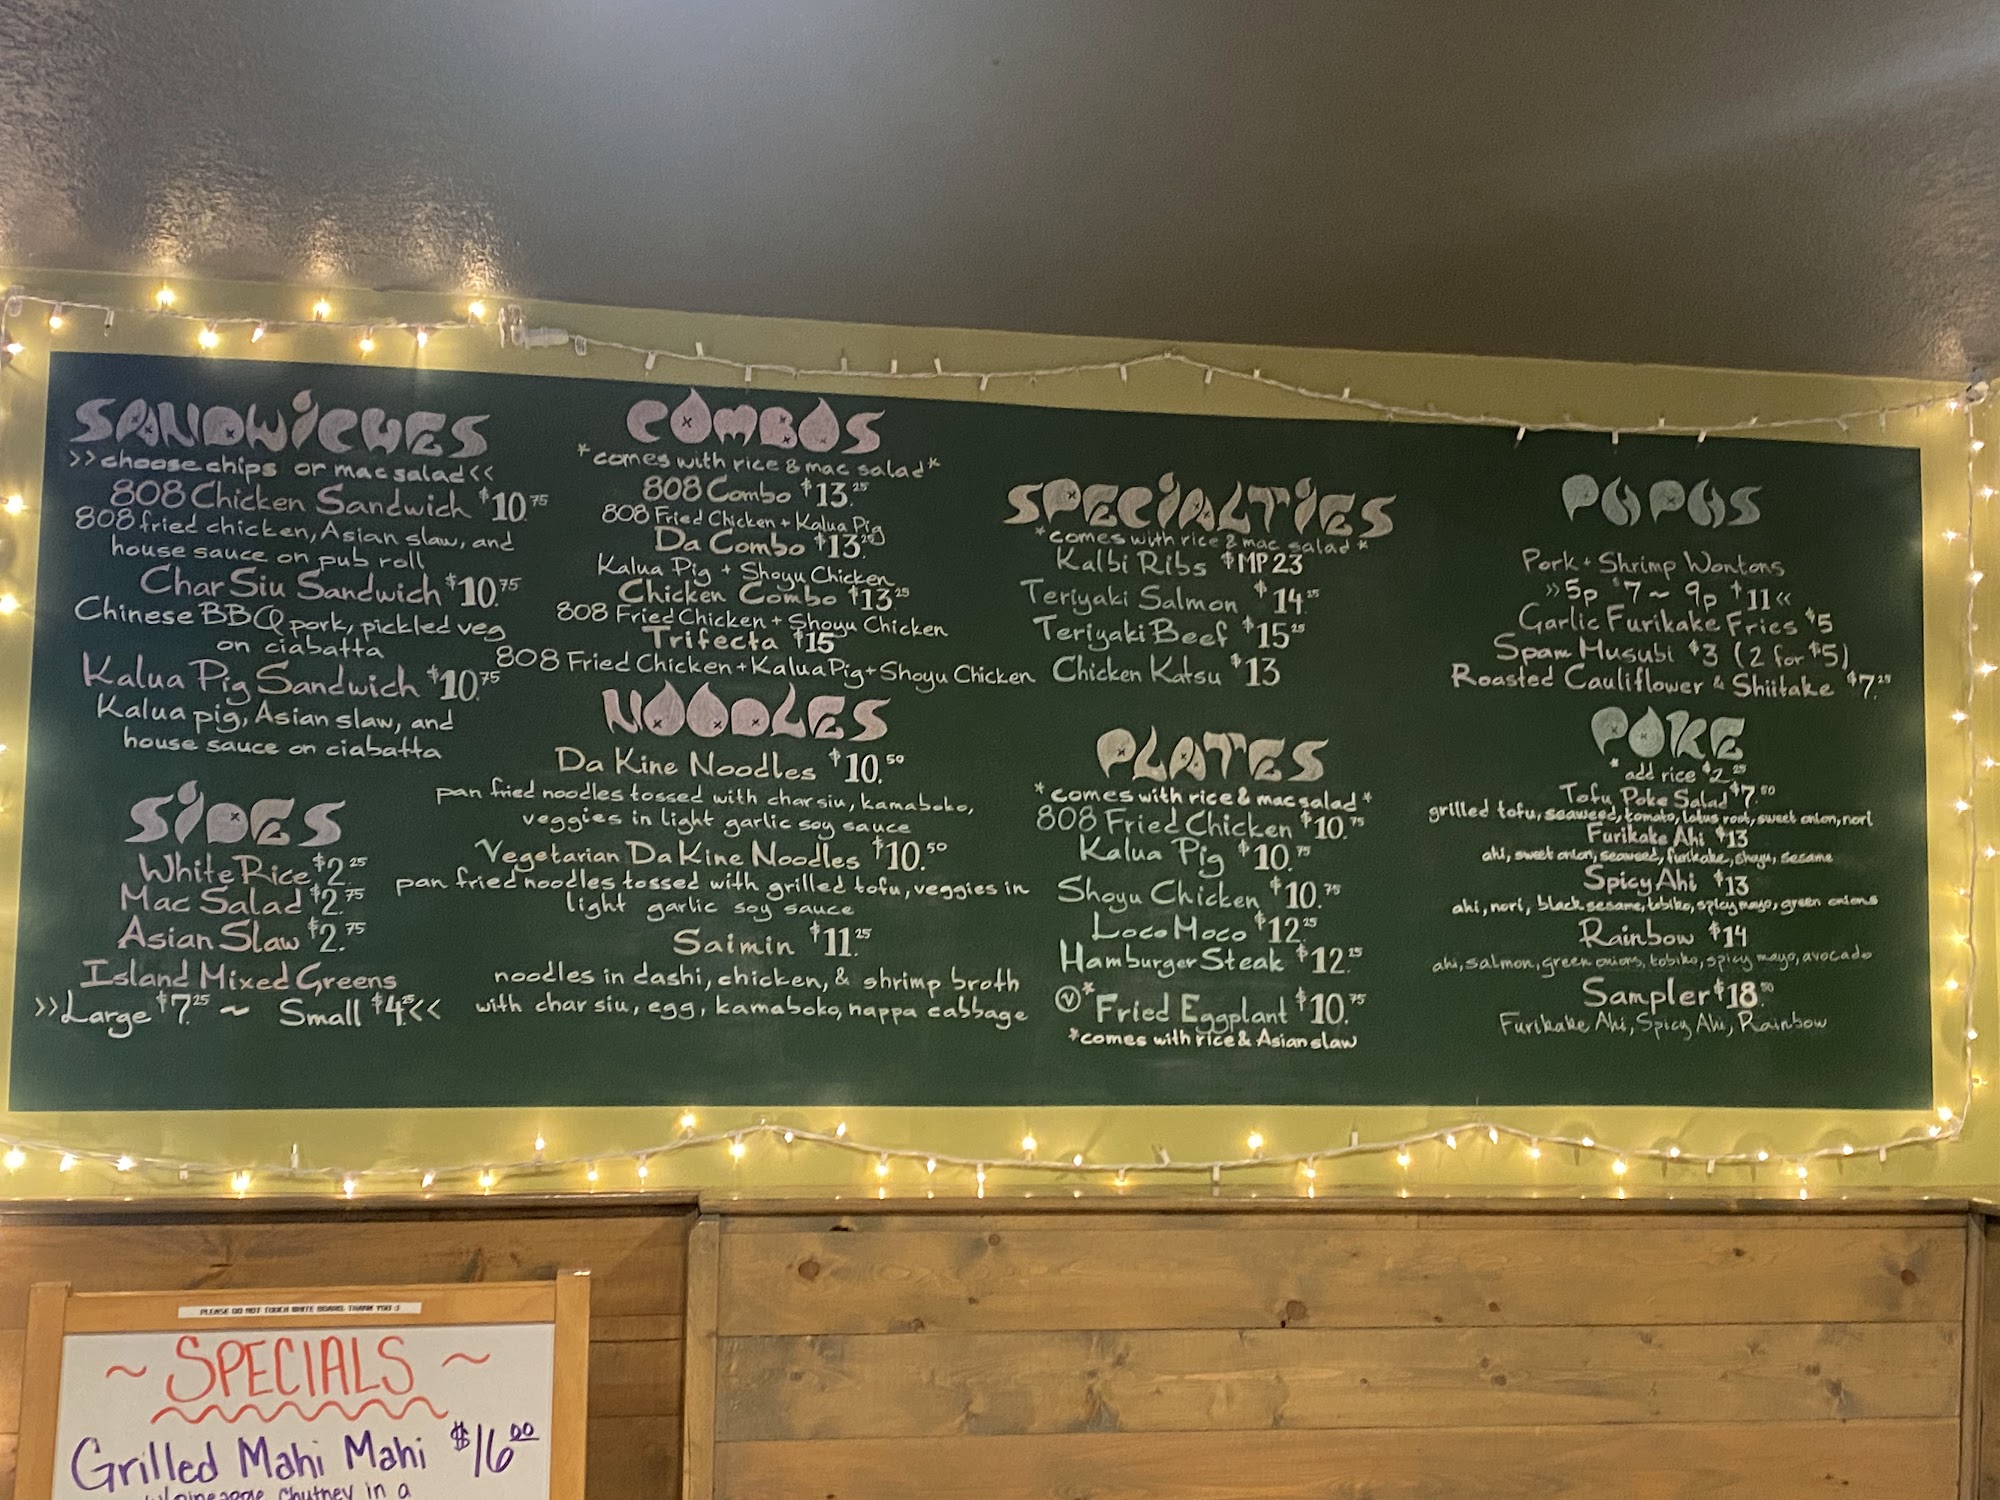 SANDWICHES
>>choose chips or mac salad<<
808 Chicken Sandwich $10.75
808 fried chicken, Asian slaw, and
house sauce on pub roll
Char Siu Sandwich $10.75
Chinese BBQ pork, pickled veg
on ciabatta
Kalua Pig Sandwich $10.75
Kalua pig, Asian slaw, and
house sauce on ciabatta
SIDES
White Rice $2.25
Mac Salad $2.75
Asian Slaw $2.75
Island Mixed Greens
>>Large $7.25 ~ Small $4.25<<
COMBOS
*comes with rice & mac salad*
808 Combo $13.25
808 Fried Chicken + Kalua Pig
Da Combo $13.25
Kalua Pig + Shoyu Chicken
Chicken Combo $13.25
808 Fried Chicken + Shoyu Chicken
Trifecta $15
808 Fried Chicken + Kalua Pig + Shoyu Chicken
NOODLES
Da Kine Noodles $10.50
pan fried noodles tossed with char siu, kamaboko,
veggies in light garlic soy sauce
Vegetarian Da Kine Noodles $10.50
pan fried noodles tossed with grilled tofu, veggies in
light garlic soy sauce
Saimin $11.25
noodles in dashi, chicken, & shrimp broth
with char siu, egg, kamaboko, nappa cabbage
SPECIALTIES
*comes with rice & mac salad*
Kalbi Ribs $MP 23
Teriyaki Salmon $14.25
Teriyaki Beef $15.25
Chicken Katsu $13
PLATES
*comes with rice & mac salad*
808 Fried Chicken $10.75
Kalua Pig $10.75
Shoyu Chicken $10.75
Loco Moco $12.25
Hamburger Steak $12.25
Ⓥ* Fried Eggplant $10.75
*comes with rice & Asian slaw
PUPUS
Pork + Shrimp Wontons
>>5p $7 ~ 9p $11<<
Garlic Furikake Fries $5
Spam Musubi $3 (2 for $5)
Roasted Cauliflower & Shiitake $7.25
POKE
*add rice $2.25
Tofu Poke Salad $7.50
grilled tofu, seaweed, tomato, lotus root, sweet onion, nori
Furikake Ahi $13
ahi, sweet onion, seaweed, furikake, shoyu, sesame
Spicy Ahi $13
ahi, nori, black sesame, tobiko, spicy mayo, green onions
Rainbow $14
ahi, salmon, green onions, tobiko, spicy mayo, avocado
Sampler $18.50
Furikake Ahi, Spicy Ahi, Rainbow
PLEASE DO NOT TOUCH WHITE BOARD. THANK YOU :)
~ SPECIALS ~
Grilled Mahi Mahi $16.00
chutney in a